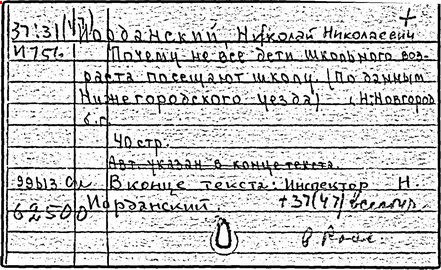 37:31(47) Иорданский, Николай Николаевич
И756 Почему не все дети школьного воз-
раста посещают школу. (По данным
Нижегородского уезда) Н-Новгород
б.г.
40 стр.
Авт. указан в конце текста.
В конце текста: Инспектор Н.
62500 Иорданский. +37(47)